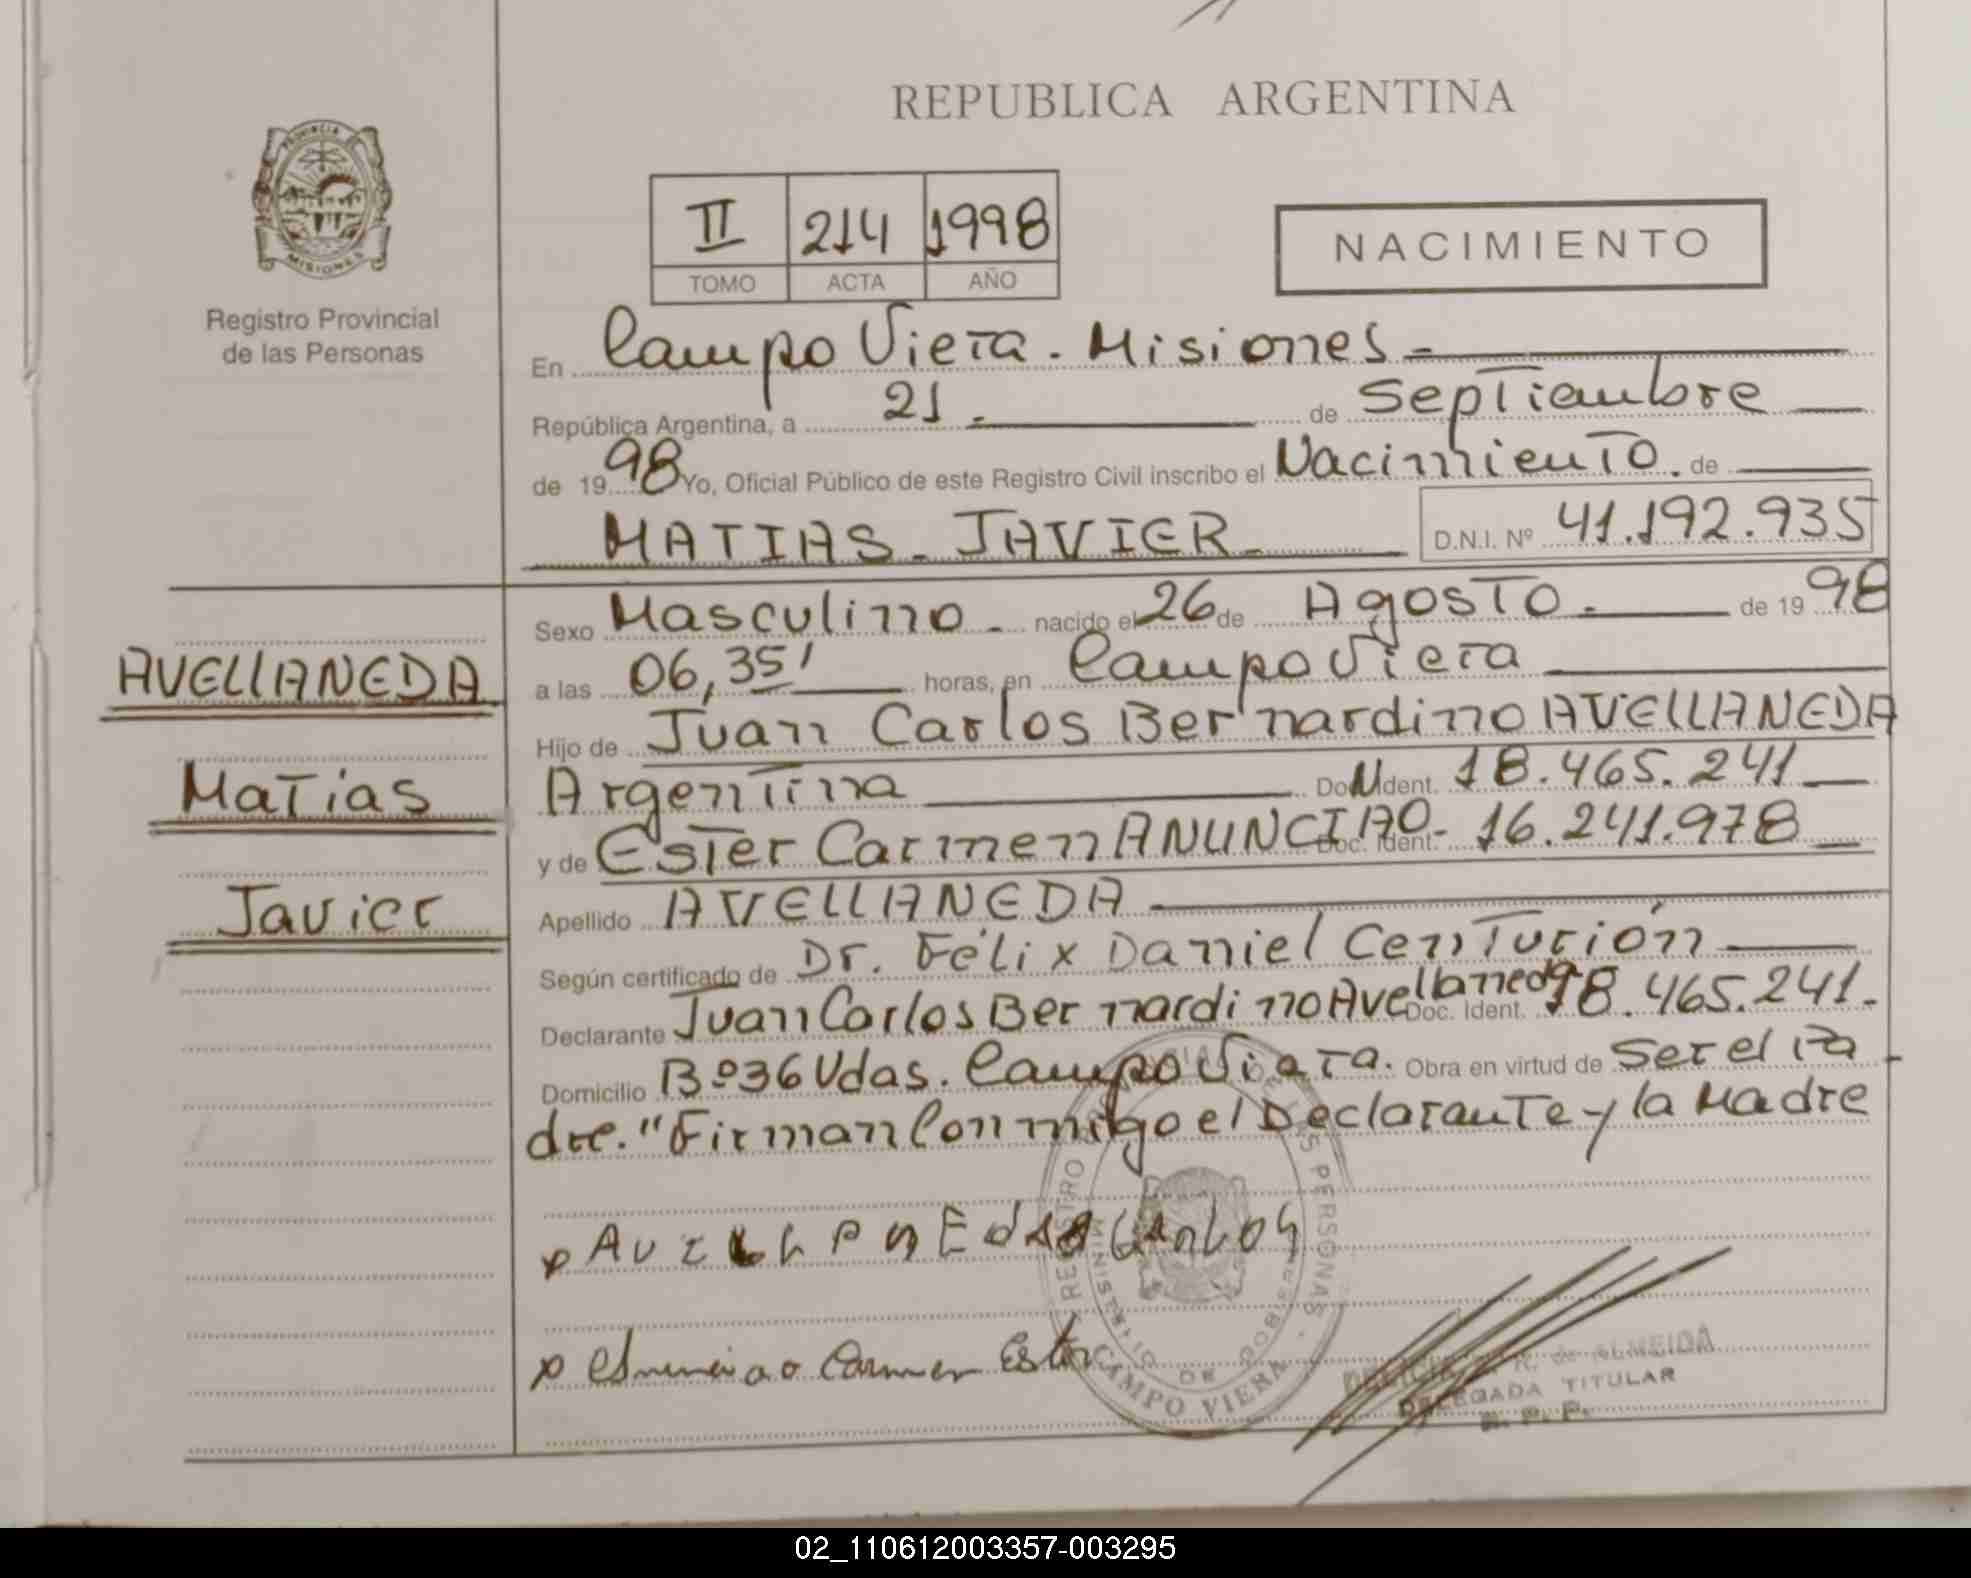 REPUBLICA ARGENTINA
PROVINCIA DE
MISIONES
Registro Provincial
de las Personas
II 214 1998
TOMO ACTA AÑO
NACIMIENTO
En Campo Viera - Misiones -
República Argentina, a 21 - de Septiembre
de 1998 Yo, Oficial Público de este Registro Civil inscribo el Nacimiento. de
MATIAS - JAVIER - D.N.I. Nº 41.192.935
AVELLANEDA
Matias
Javier
Sexo Masculino - nacido el 26 de Agosto - de 1998
a las 06,35' horas, en Campo Viera
Hijo de Juan Carlos Bernardino AVELLANEDA
Argentina Doc. Ident. 18.465.241
y de Ester Carmen ANUNCIAO - Doc. Ident. 16.241.978
Apellido AVELLANEDA
Según certificado de Dr. Félix Daniel Centurión
Declarante Juan Carlos Bernardino Avellaneda Doc. Ident. 18.465.241.
Domicilio Bº 36 Vdas. Campo Viera. Obra en virtud de Ser el Pa
dre." Firman Conmigo el Declarante y la Madre
CAMPO VIERA
R. de ALMEIDA
DELEGADA TITULAR
R. P. P.
02_110612003357-003295